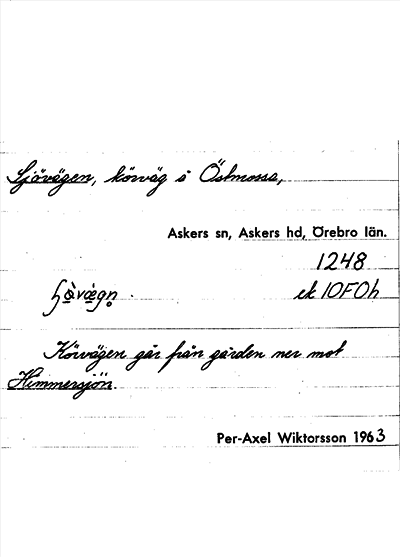 Sjövägen, körväg å Östmossa,
Askers sn, Askers hd, Örebro län.
1248
ek 10F0h
Körvägen går från gården ner mot
Hemmersjön.
Per-Axel Wiktorsson 1963